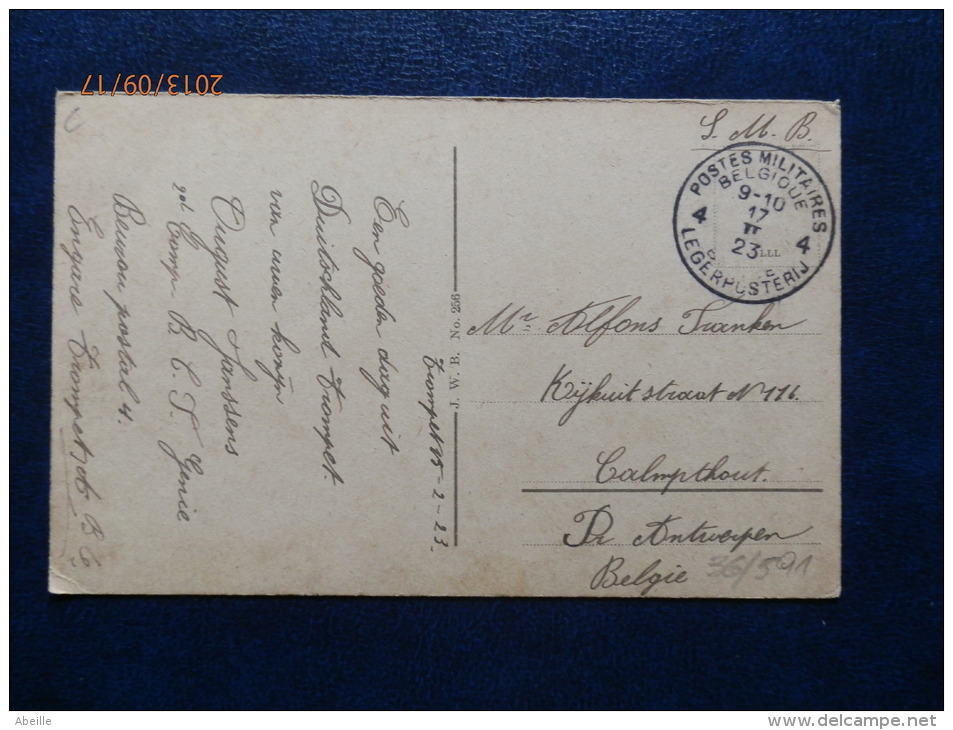 2013/09/17
S. M. B.
POSTES MILITAIRES
BELGIQUE
9-10
17
II
23
4 4
LEGERPOSTERIJ
Mr Alfons Franken
Kijkuit straat N 116.
Calmpthout.
Pr Antwerpen
Belgie
36/591
J. W. B. No. 256
Trompet 15-2-23.
Een goeden dag uit
Duitschland Trompet.
van uwen kozijn
August Janssens
2de Comp B C F. Genie
Bureau postal 4.
Trompet
Abeille
www.delcampe.net